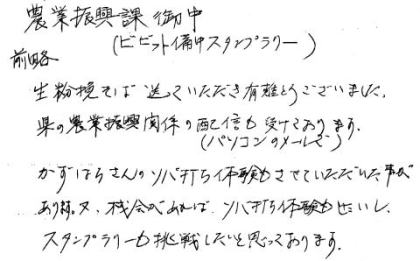 農業振興課御中
(ビビット備中スタンプラリー)
前略
生粉挽そば送っていただき有難とうございました。
県の農業振興関係の配信も受けております。
(パソコンのメールで)
かずはらさんのソバ打ち体験もさせていただいた事が
あります。又、機会があれば、ソバ打ち体験も
スタンプラリーも挑戦したいと思っております。